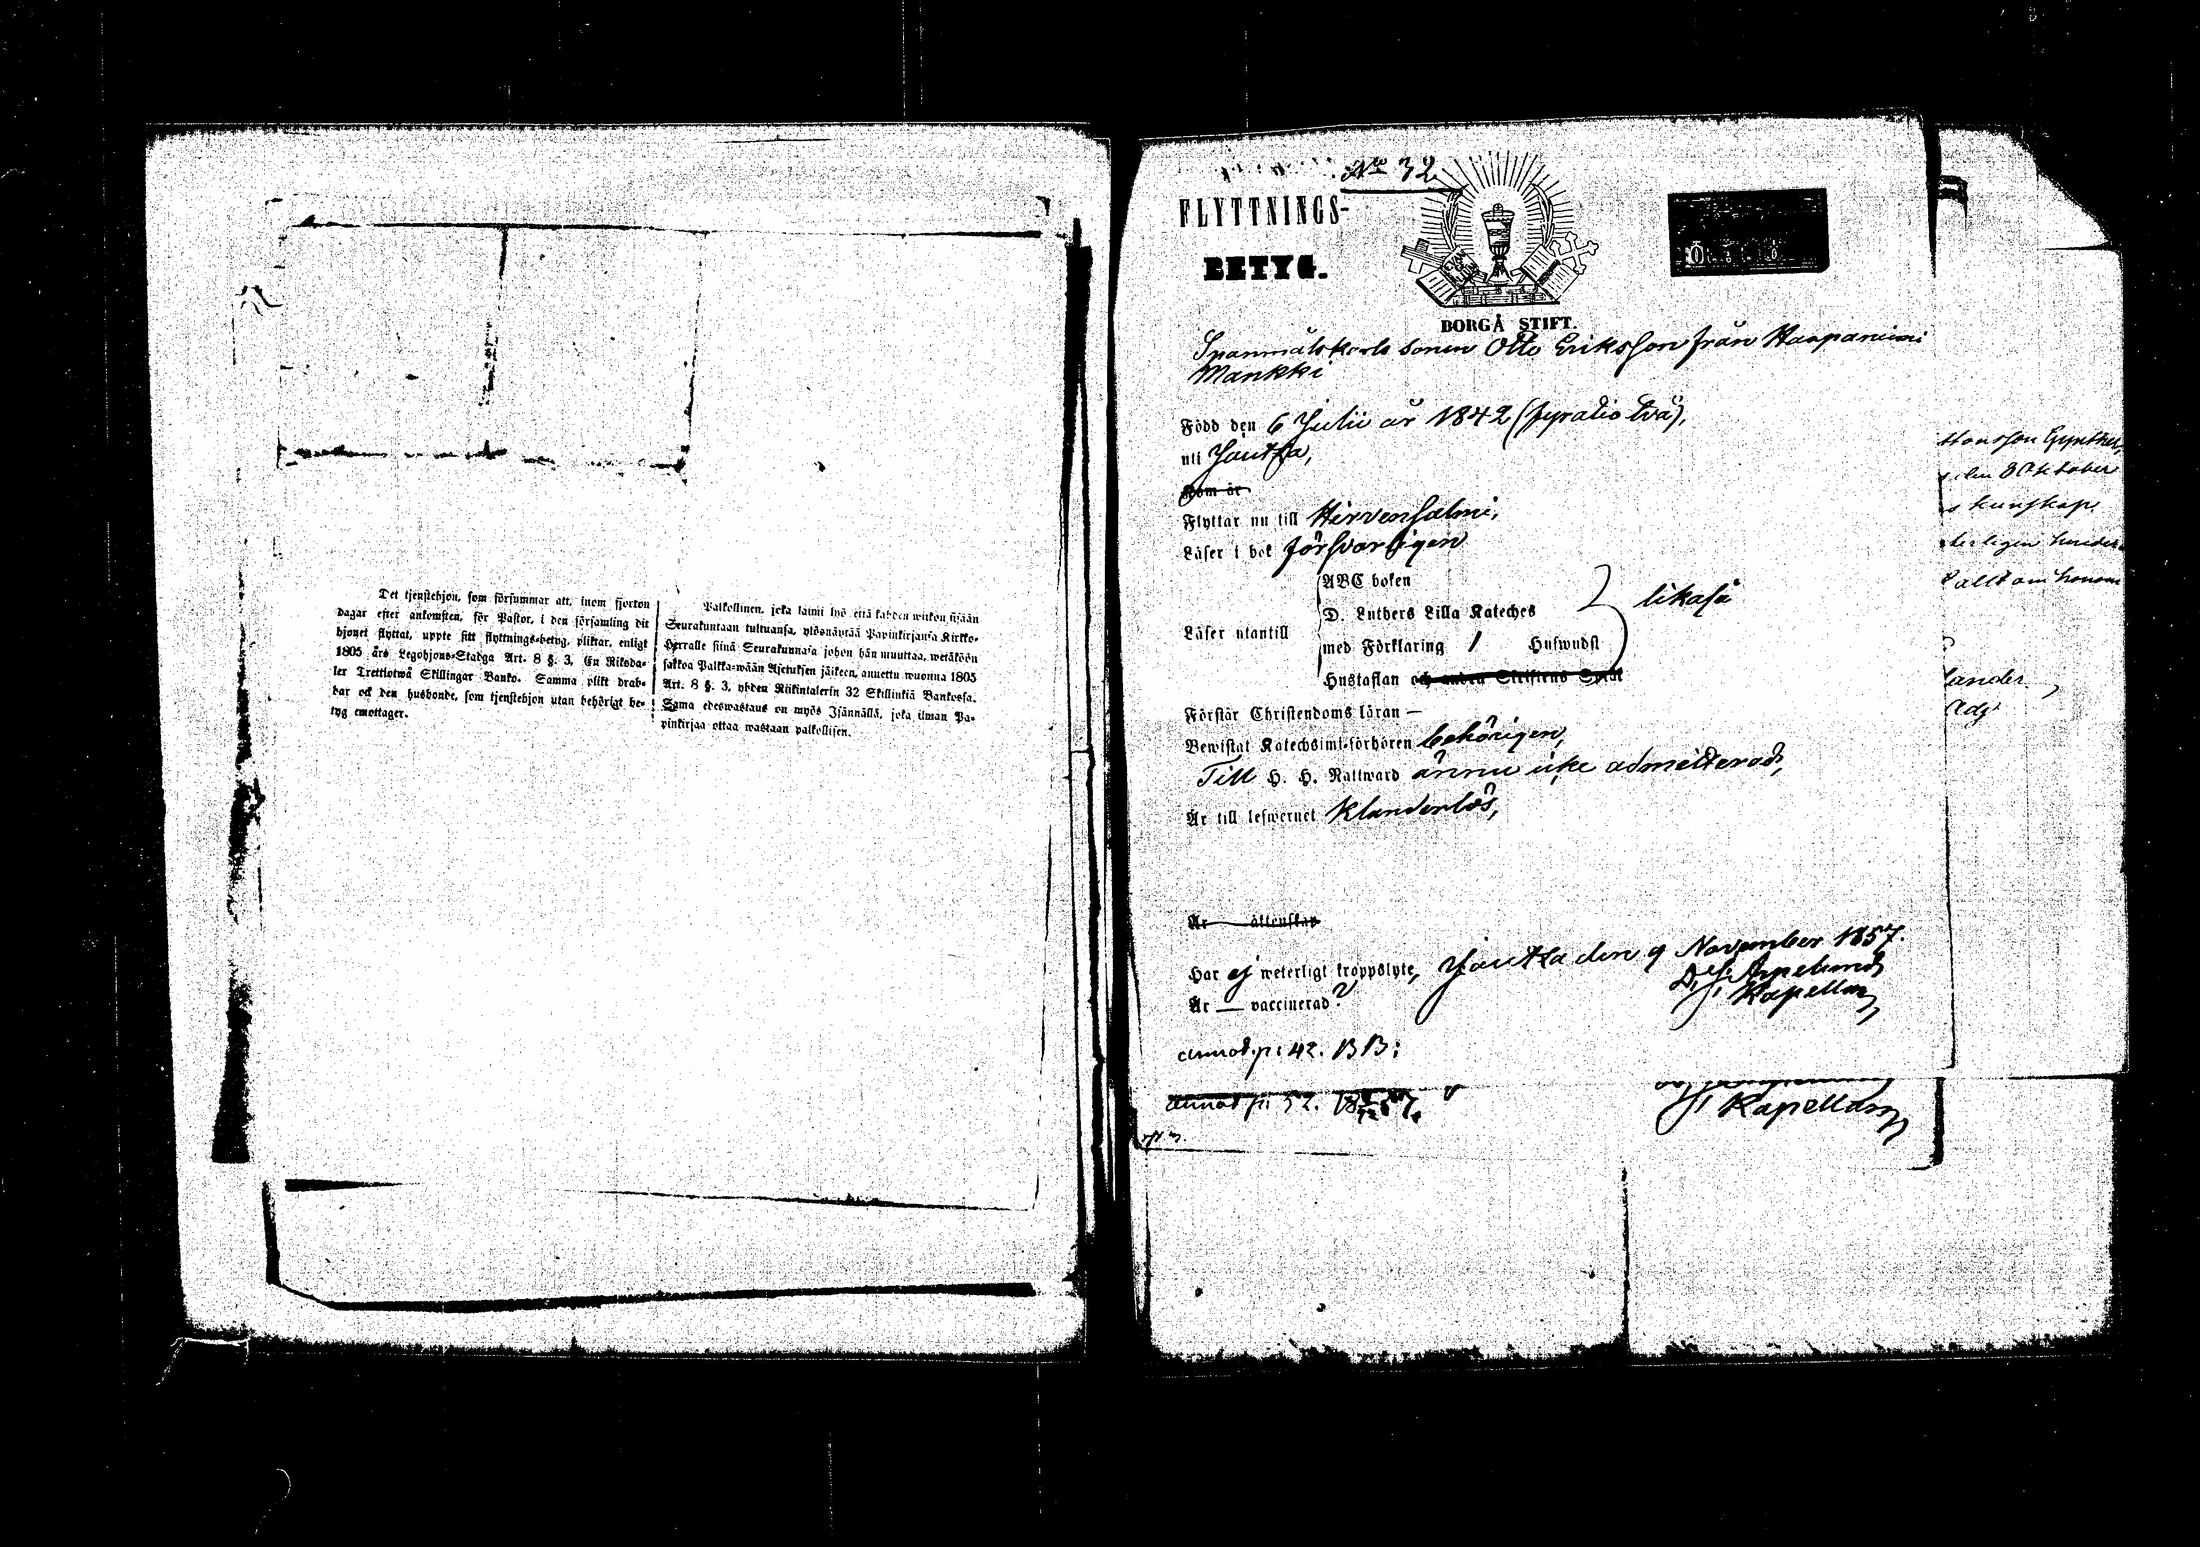 Det tjenstehjon, som försummar att, inom fjorton
dagar efter ankomsten, för Pastor, i den församling dit
hjonet flyttat, uppte sitt flyttnings-betyg, pliktar, enligt
1805 års Legohjons-Stadga Art. 8 §. 3, En Riksda-
ler Trettiotwå Skillingar Banko. Samma plikt drab-
bar ock den husbonde, som tjenstehjon utan behörigt be-
tyg emottager.
Palkollinen, joka laimi lyö että kahden wiikon sisään
Seurakuntaan tultuansa, ylösnäyttää Papinkirjansa Kirkko-
Herralle siinä Seurakunnasa johon hän muuttaa, wetäköön
sakkoa Palkka-wään Asetuksen jälkeen, annettu wuonna 1805
Art. 8 §. 3, yhden Riikintalerin 32 Skillinkiä Bankossa.
Sama edeswastaus on myös Isännällä, joka ilman Pa-
pinkirjaa ottaa wastaan palkollisen.
No 32
FLYTTNINGS-
BETYG.
BORGÅ STIFT.
Spanmålskarls sonen Otto Eriksson från Haapaniemi
Mankki
Född den 6 Julii år 1842 (fyratio två),
uti Jäutka,
Kom år
Flyttar nu till Hirvensalmi,
Läser i bok försvarligen
ABC boken
D. Luthers Lilla Kateches
likaså
Läser utantill
med Förklaring 1 Huswudst
Hustaflan och andra Skriftens Språk
Förstår Christendoms läran —
Bewistat Katechismi-förhören behörigen,
Till H. H. Nattward ännu icke admitterad,
Är till lefwernet Klanderlös,
Är äktenskap
Har ej weterligt kroppslyte, Jäutka den 9 November 1857.
Kapellan
Är — vaccinerad?
annot. p: 42. BB:
annot p: 52.
Kapellan
Gynther,
den 8 Oktober
kunskap
allt om honom
Adj